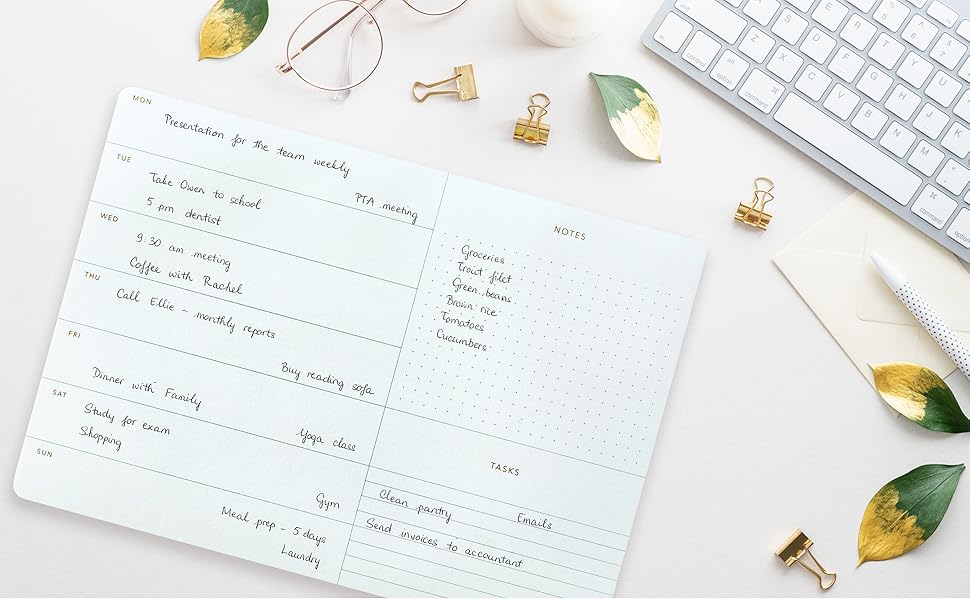 MON
Presentation for the team weekly
PTA meeting
TUE
Take Owen to school
5 pm dentist
WED
9:30 am meeting
Coffee with Rachel
THU
Call Ellie - monthly reports
Buy reading sofa
FRI
Dinner with Family
Yoga class
SAT
Study for exam
Shopping
Gym
SUN
Meal prep - 5 days
Laundry
NOTES
Groceries
Trout filet
Green beans
Brown rice
Tomatoes
Cucumbers
TASKS
Clean pantry Emails
Send invoices to accountant
A S D F G H J K
Z X C V B N M
control alt option command
command option